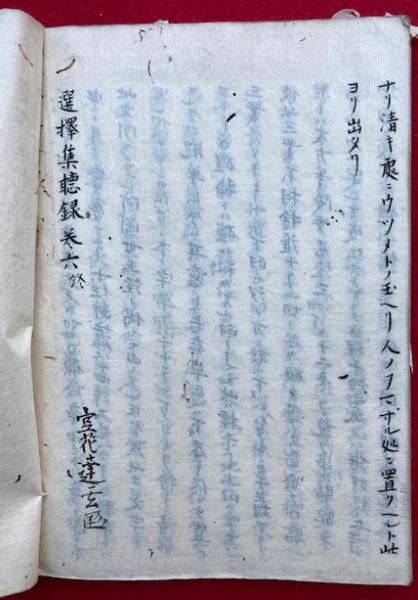 ナリ清キ處ニウツメトノ玉ヘリ人ノフマザル処ニ置クヘシト此
ヨリ出タリ
選擇集聴録巻六終
空花達玄